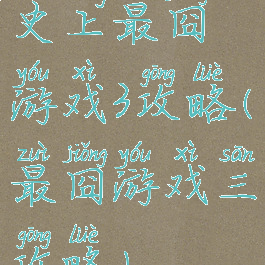 史上最囧
yóu xì gōng lüè
游戏3攻略(
zuì jiǒng yóu xì sān
最囧游戏三
gōng lüè
攻略)